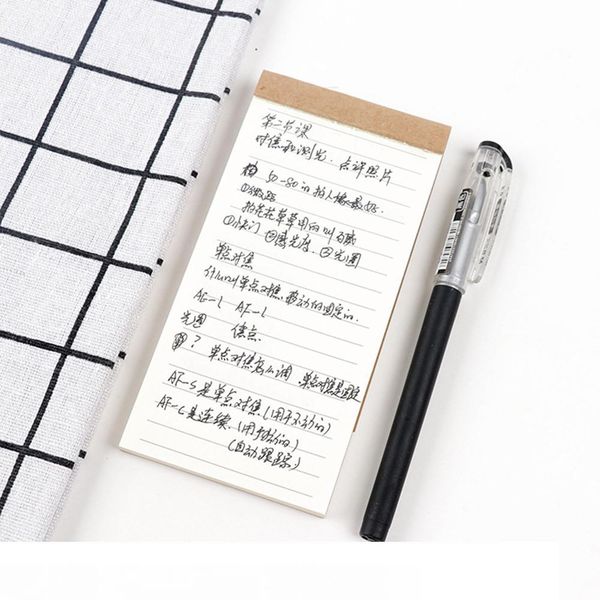 第二节课
对焦和测光. 点评照片
50-80的拍人像最好.
①微距
拍花花草草用的叫百微
①快门 ②感光度. ③光圈
单点对焦
什么叫单点对焦 移动的固定的.
AE-L AF-L
光圈 焦点.
? 单点对焦怎么调 单点对焦是固定
AF-S是单点对焦(用于不动的)
AF-C是连续.(用于动的)
(自动跟踪)